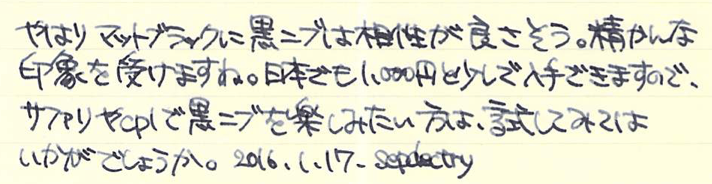 やはりマットブラックに黒ニブは相性が良さそう。精かんな
印象を受けますね。日本でも1,000円と少しで入手できますので、
サファリやcp1で黒ニブを楽しみたい方は、試してみては
いかがでしょうか。2016.1.17-